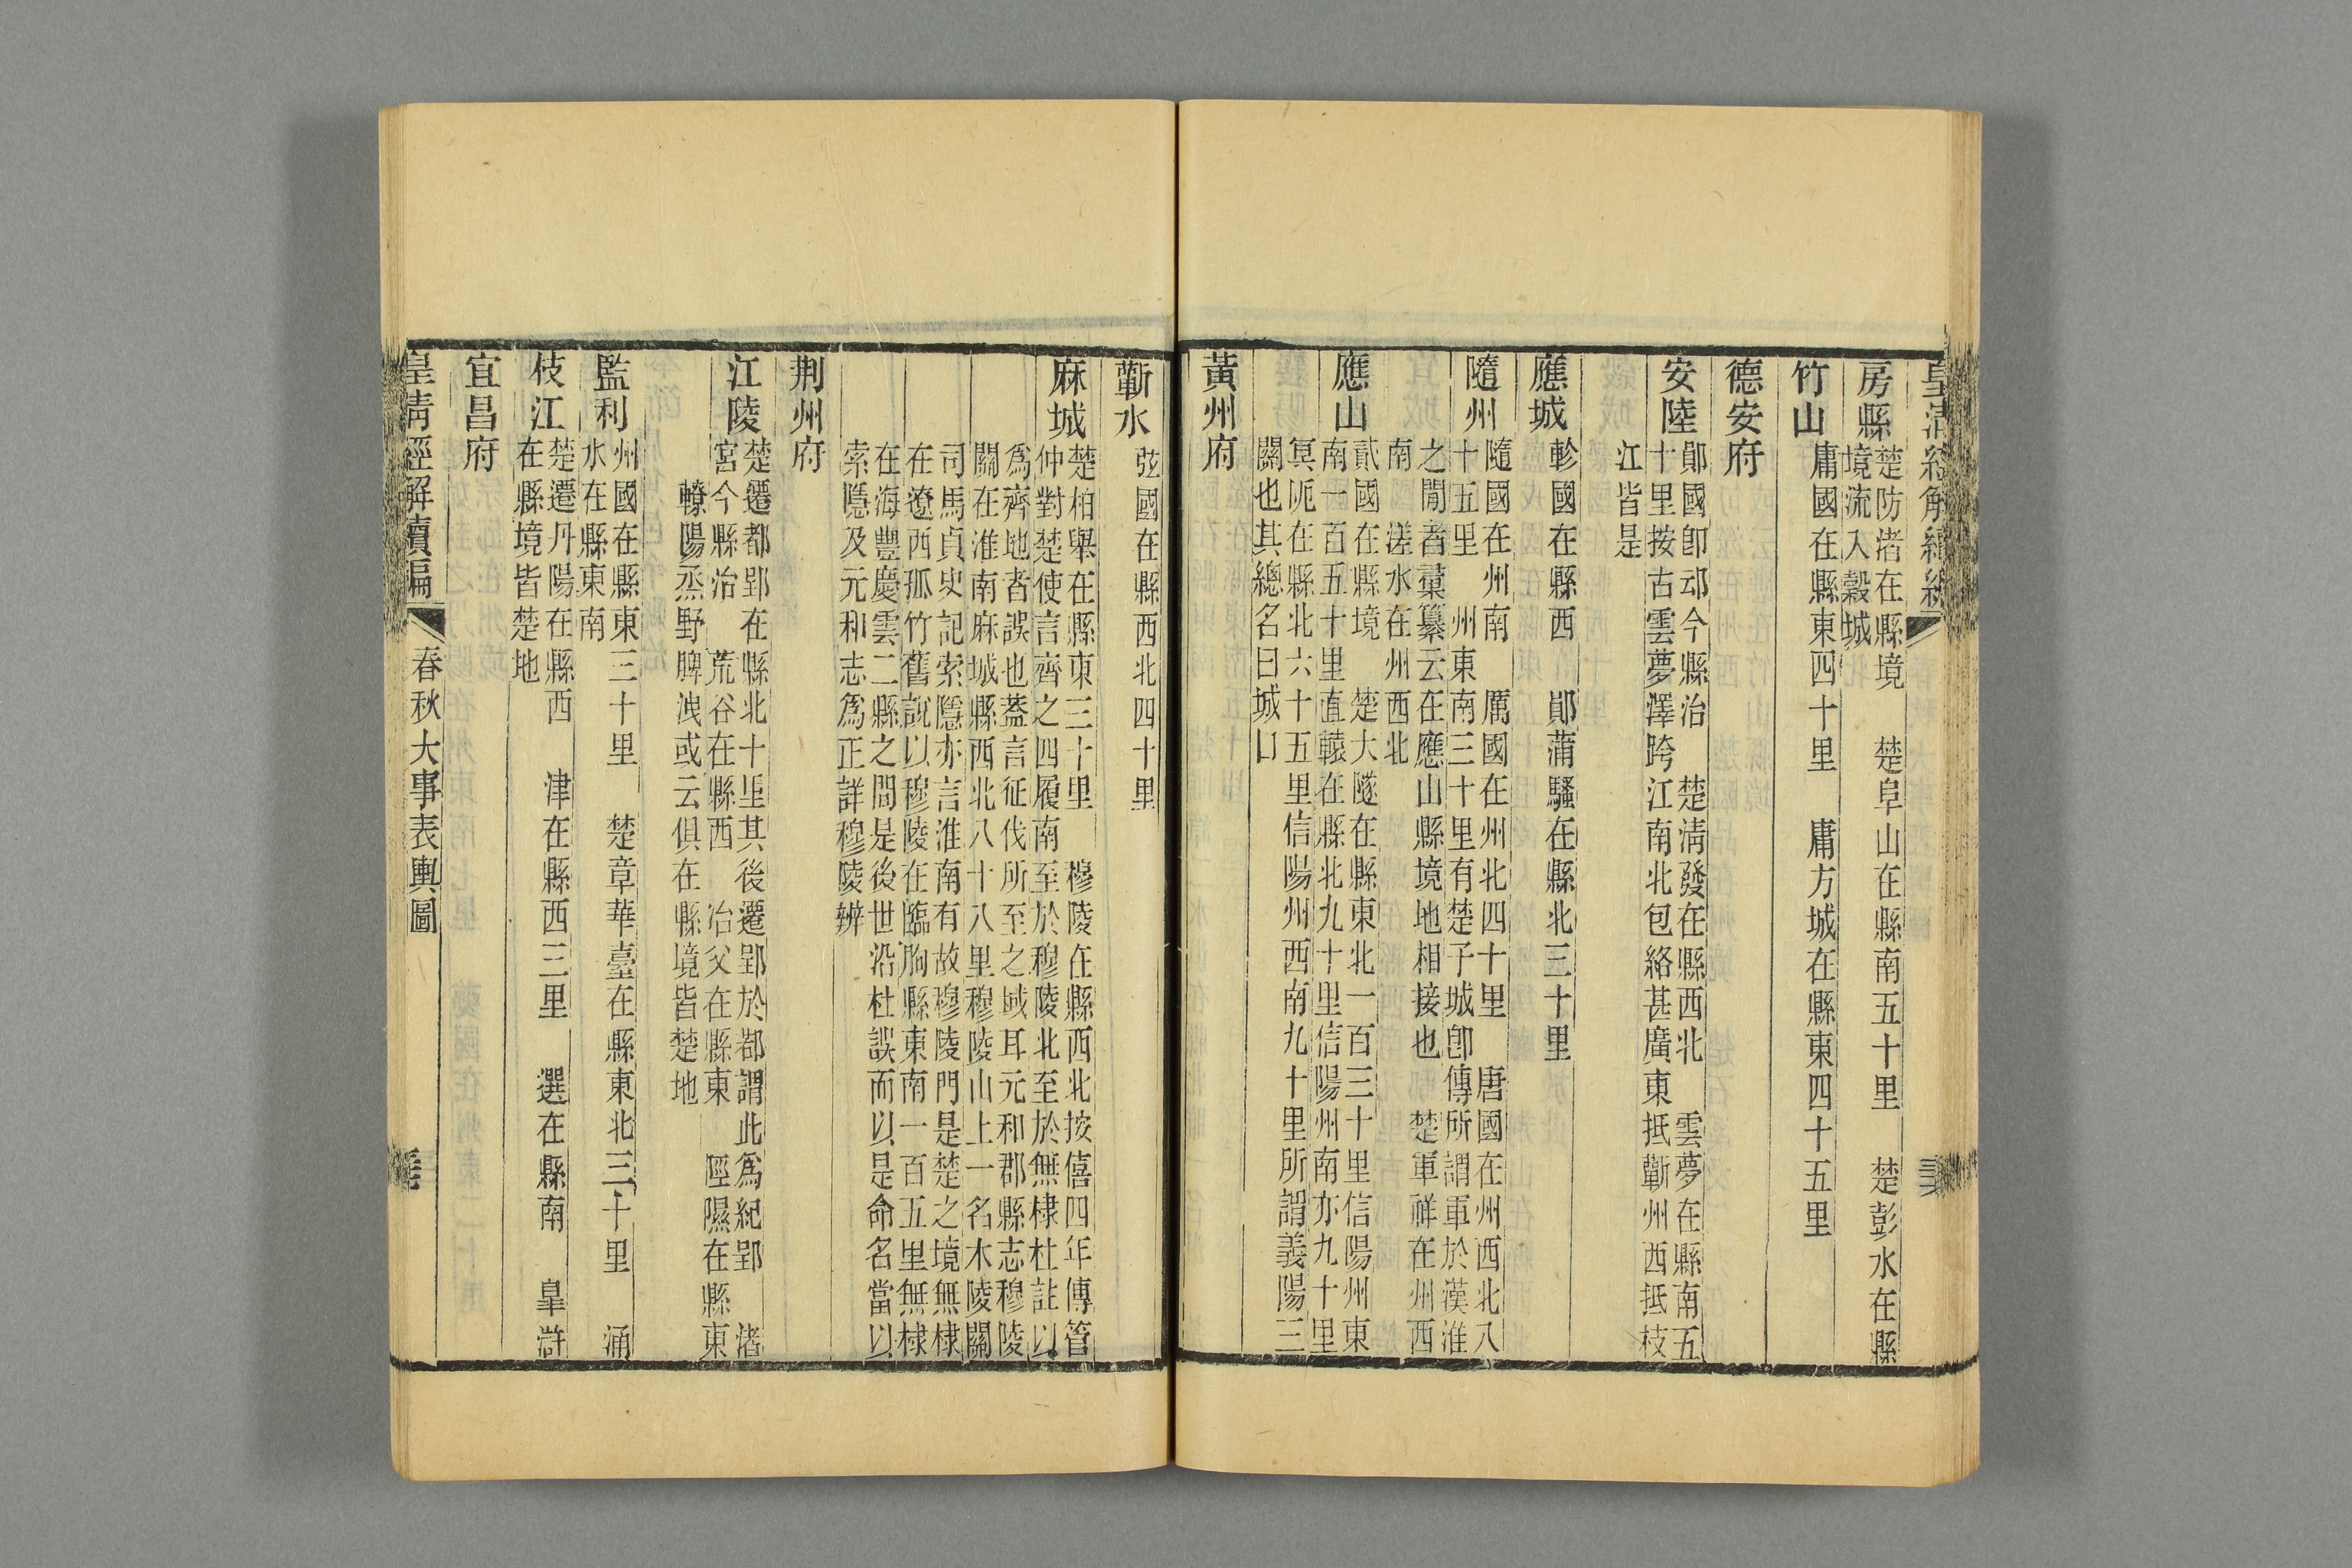 房縣
楚防渚在縣境　楚阜山在縣南五十里　楚彭水在縣
境流入穀城
竹山　庸國在縣東四十里　庸方城在縣東四十五里
德安府
安陸
鄖國卽䢵今縣治　楚淸發在縣西北　雲夢在縣南五
十里按古雲夢澤跨江南北包絡甚廣東抵蘄州西抵枝
江皆是
應城　軫國在縣西　鄖蒲騷在縣北三十里
隨州
隨國在州南　厲國在州北四十里　唐國在州西北八
十五里　州東南三十里有楚子城卽傳所謂軍於漢淮
之閒者蕖纂云在應山縣境地相接也　楚軍祥在州西
南　溠水在州西北
應山
貳國在縣境　楚大隧在縣東北一百三十里信陽州東
南一百五十里直轅在縣北九十里信陽州南亦九十里
冥阨在縣北六十五里信陽州西南九十里所謂義陽三
關也其總名曰城口
黃州府
蘄水　弦國在縣西北四十里
麻城
楚柏舉在縣東三十里　穆陵在縣西北按僖四年傳管
仲對楚使言齊之四履南至於穆陵北至於無棣杜註以
爲齊地者誤也蓋言征伐所至之域耳元和郡縣志穆陵
關在淮南麻城縣西北八十八里穆陵山上一名木陵關
司馬貞史記索隱亦言淮南有故穆陵門是楚之境無棣
在遼西孤竹舊說以穆陵在臨朐縣東南一百五里無棣
在海豐慶雲二縣之間是後世沿杜誤而以是命名當以
索隱及元和志爲正詳穆陵辨
荆州府
江陵
楚遷都郢在縣北十里其後遷郢於鄀謂此爲紀郢　渚
宮今縣治　荒谷在縣西　冶父在縣東　陘隰在縣東
轑陽烝野脾洩或云俱在縣境皆楚地
監利
州國在縣東三十里　楚章華臺在縣東北三十里　涌
水在縣東南
枝江
楚遷丹陽在縣西　津在縣西三里　選在縣南　皐滸
在縣境皆楚地
宜昌府
皇淸經解續編　春秋大事表輿圖